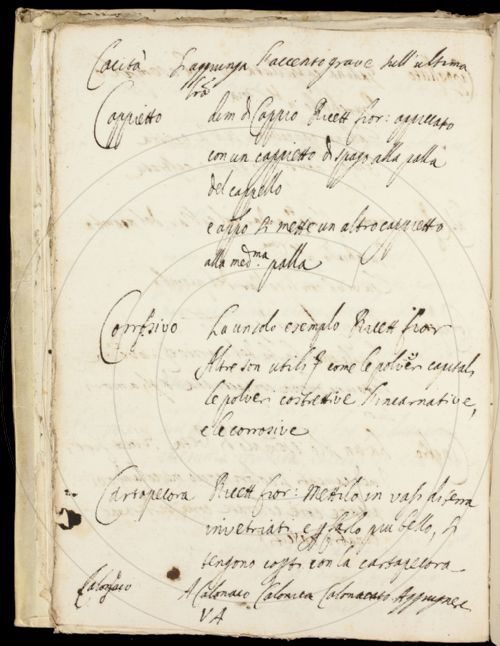 Cacità si aggiunga l'accento grave sull'ultima
Cappietto dim di Cappio Ricett fior: appiccato
con un cappietto di spago alla palla
del cappello
e appo si mette un altro cappietto
alla med.ma palla
Corrosivo Ha un solo esempio Ricett fior
Altre son utili come le polveri capitali
le polveri costrettive l'incarnative,
e le corrosive
Cartapecora Ricett fior: Mettilo in vasi di terra
invetriati, e per farlo più bello, si
tengono coperti con la cartapecora
Calonaco A Calonaco Calonica Calonacato Aggiugnere
V 4